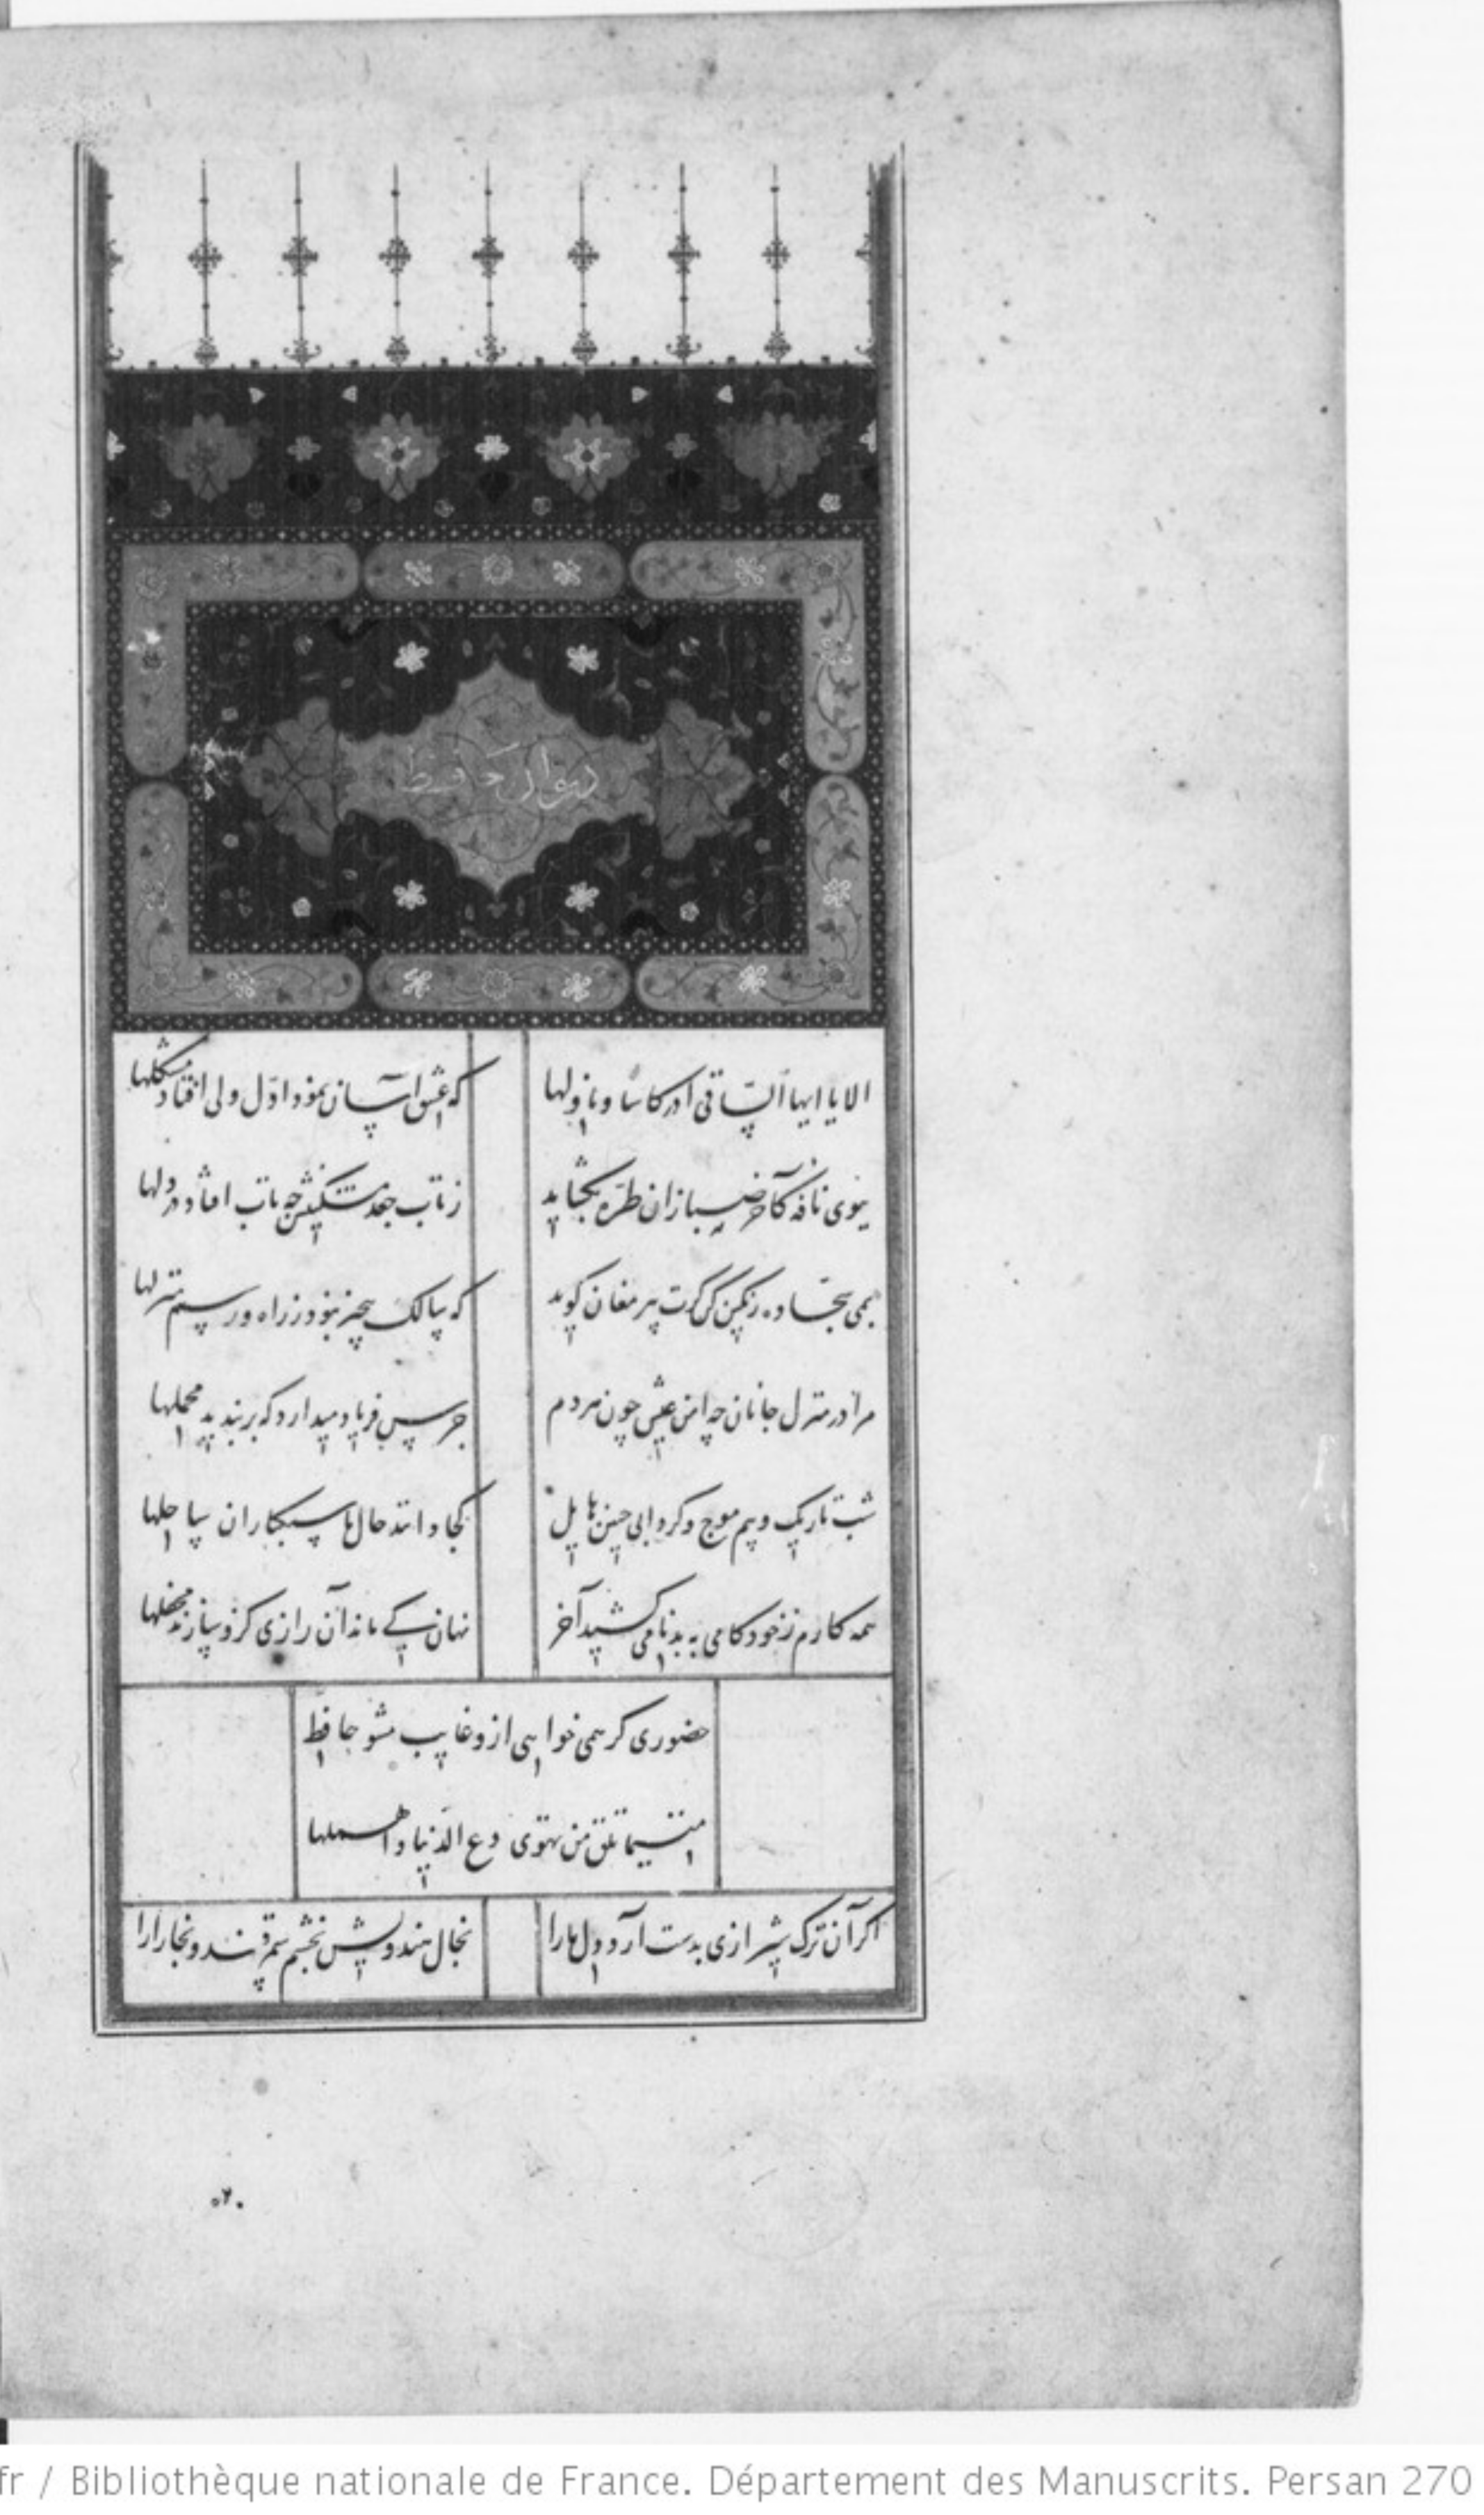 دیوان حافظ
الا یا ایها الساقی ادر کاسا و ناولها که عشق آسان نمود اول ولی افتاد مشکلها
ببوی نافه کآخر صبا زان طره بکشاید ز تاب جعد مشکینش چه تاب افتاد در دلها
بمی سجاده رنکین کن کرت پیر مغان کوید که سالک بیخبر نبود ز راه و رسم منزلها
مرا در منزل جانان چه امن عیش چون هر دم جرس فریاد میدارد که بربندید محملها
شب تاریک و بیم موج و کردابی چنین هایل کجا دانند حال ما سبکباران ساحلها
همه کارم ز خودکامی به بدنامی کشید آخر نهان کی ماند آن رازی کزو سازند محفلها
حضوری کر همی خواهی ازو غایب مشو حافظ
متی ما تلق من تهوی دع الدنیا و اهملها
اکر آن ترک شیرازی بدست آرد دل ما را بخال هندویش بخشم سمرقند و بخارا را
fr / Bibliothèque nationale de France. Département des Manuscrits. Persan 270